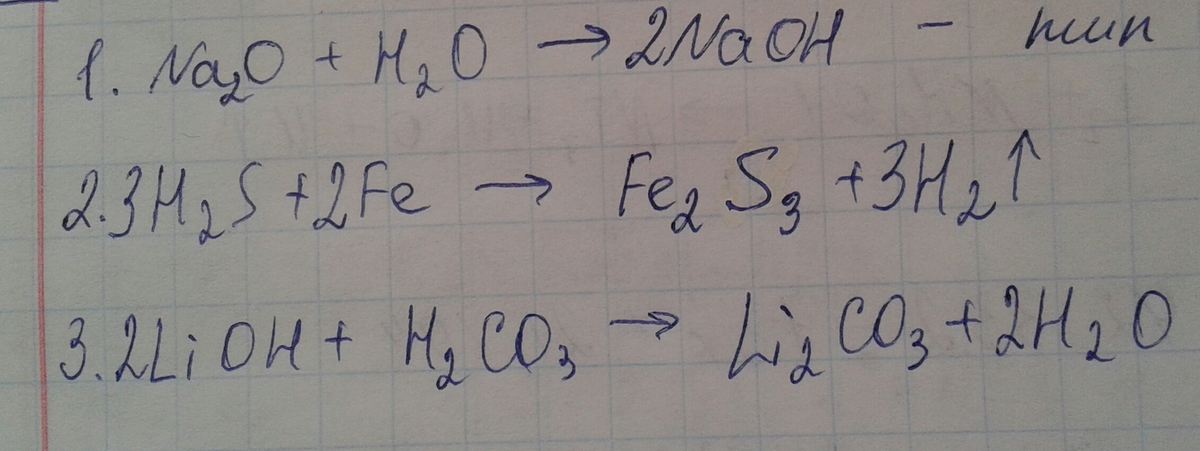 1. Na₂O + H₂O → 2NaOH – тип
2. 3H₂S + 2Fe → Fe₂S₃ + 3H₂↑
3. 2LiOH + H₂CO₃ → Li₂CO₃ + 2H₂O